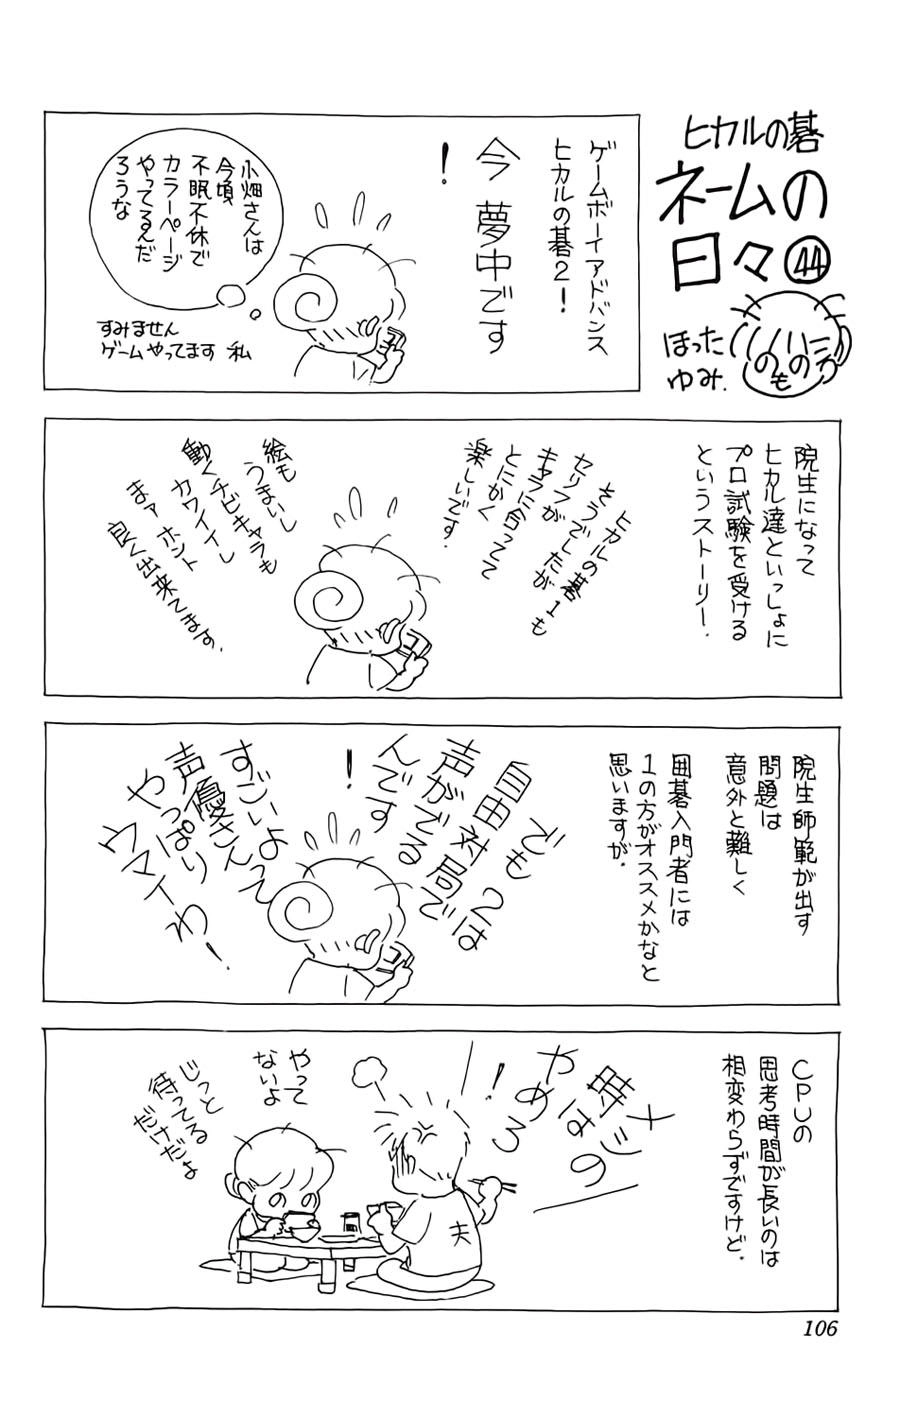 ヒカルの碁
ネームの
日々㊹
ほった
ゆみ.
ゲームボーイアドバンス
ヒカルの碁2!
今 夢中です
!
小畑さんは
今頃
不眠不休で
カラーページ
やってるんだ
ろうな
すみません
ゲームやってます 私
院生になって
ヒカル達といっしょに
プロ試験を受ける
というストーリー.
ヒカルの碁1も
そうでしたが
セリフが
キャラに合ってて
とにかく
楽しいです.
絵も
うまいし
動くチビキャラも
カワイイし
まァ ホント
良く出来てます.
院生師範が出す
問題は
意外と難しく
囲碁入門者には
1の方がオススメかなと
思いますが.
でも2は
自由対局で
声がでる
んです
!
すごいよって
声優さん
やっぱり
ウマイわ!
CPUの
思考時間が長いのは
相変わらずですけど.
メシの
時は
やめろ
!
やって
ないよ
じっと
待ってる
だけだよ
夫
106